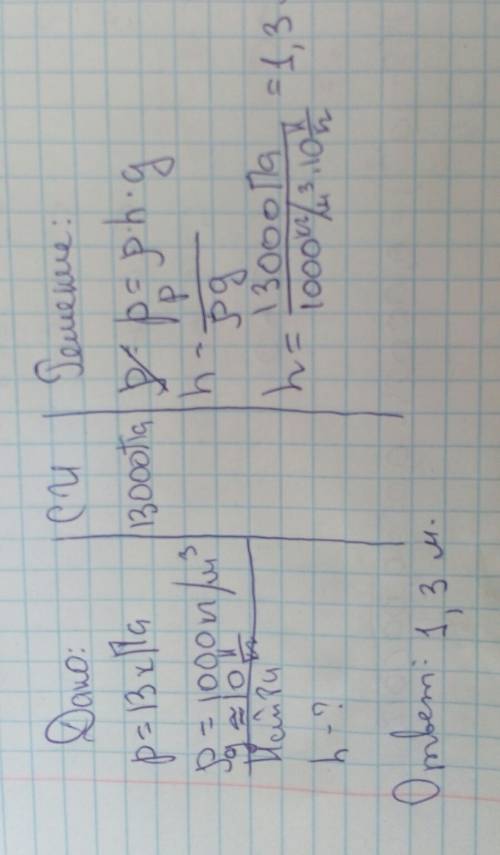 Дано:
p = 13 кПа
ρ = 1000 кг/м³
g ≈ 10 Н/кг
Найти
h - ?
СИ
13000Па
Решение:
p = ρ·h·g
h = p/ρg
h = 13000Па / 1000кг/м³·10Н/кг = 1,3
Ответ: 1,3 м.